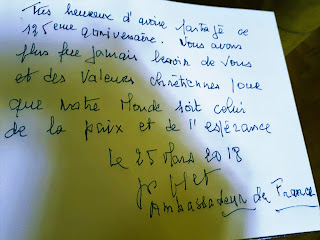 Très heureux d'avoir partagé ce
125ème anniversaire. Vous avons
plus que jamais besoin de vous
et des valeurs chrétiennes pour
que notre Monde soit celui
de la paix et de l'espérance
Le 25 Mars 2018
Ambassadeur de France